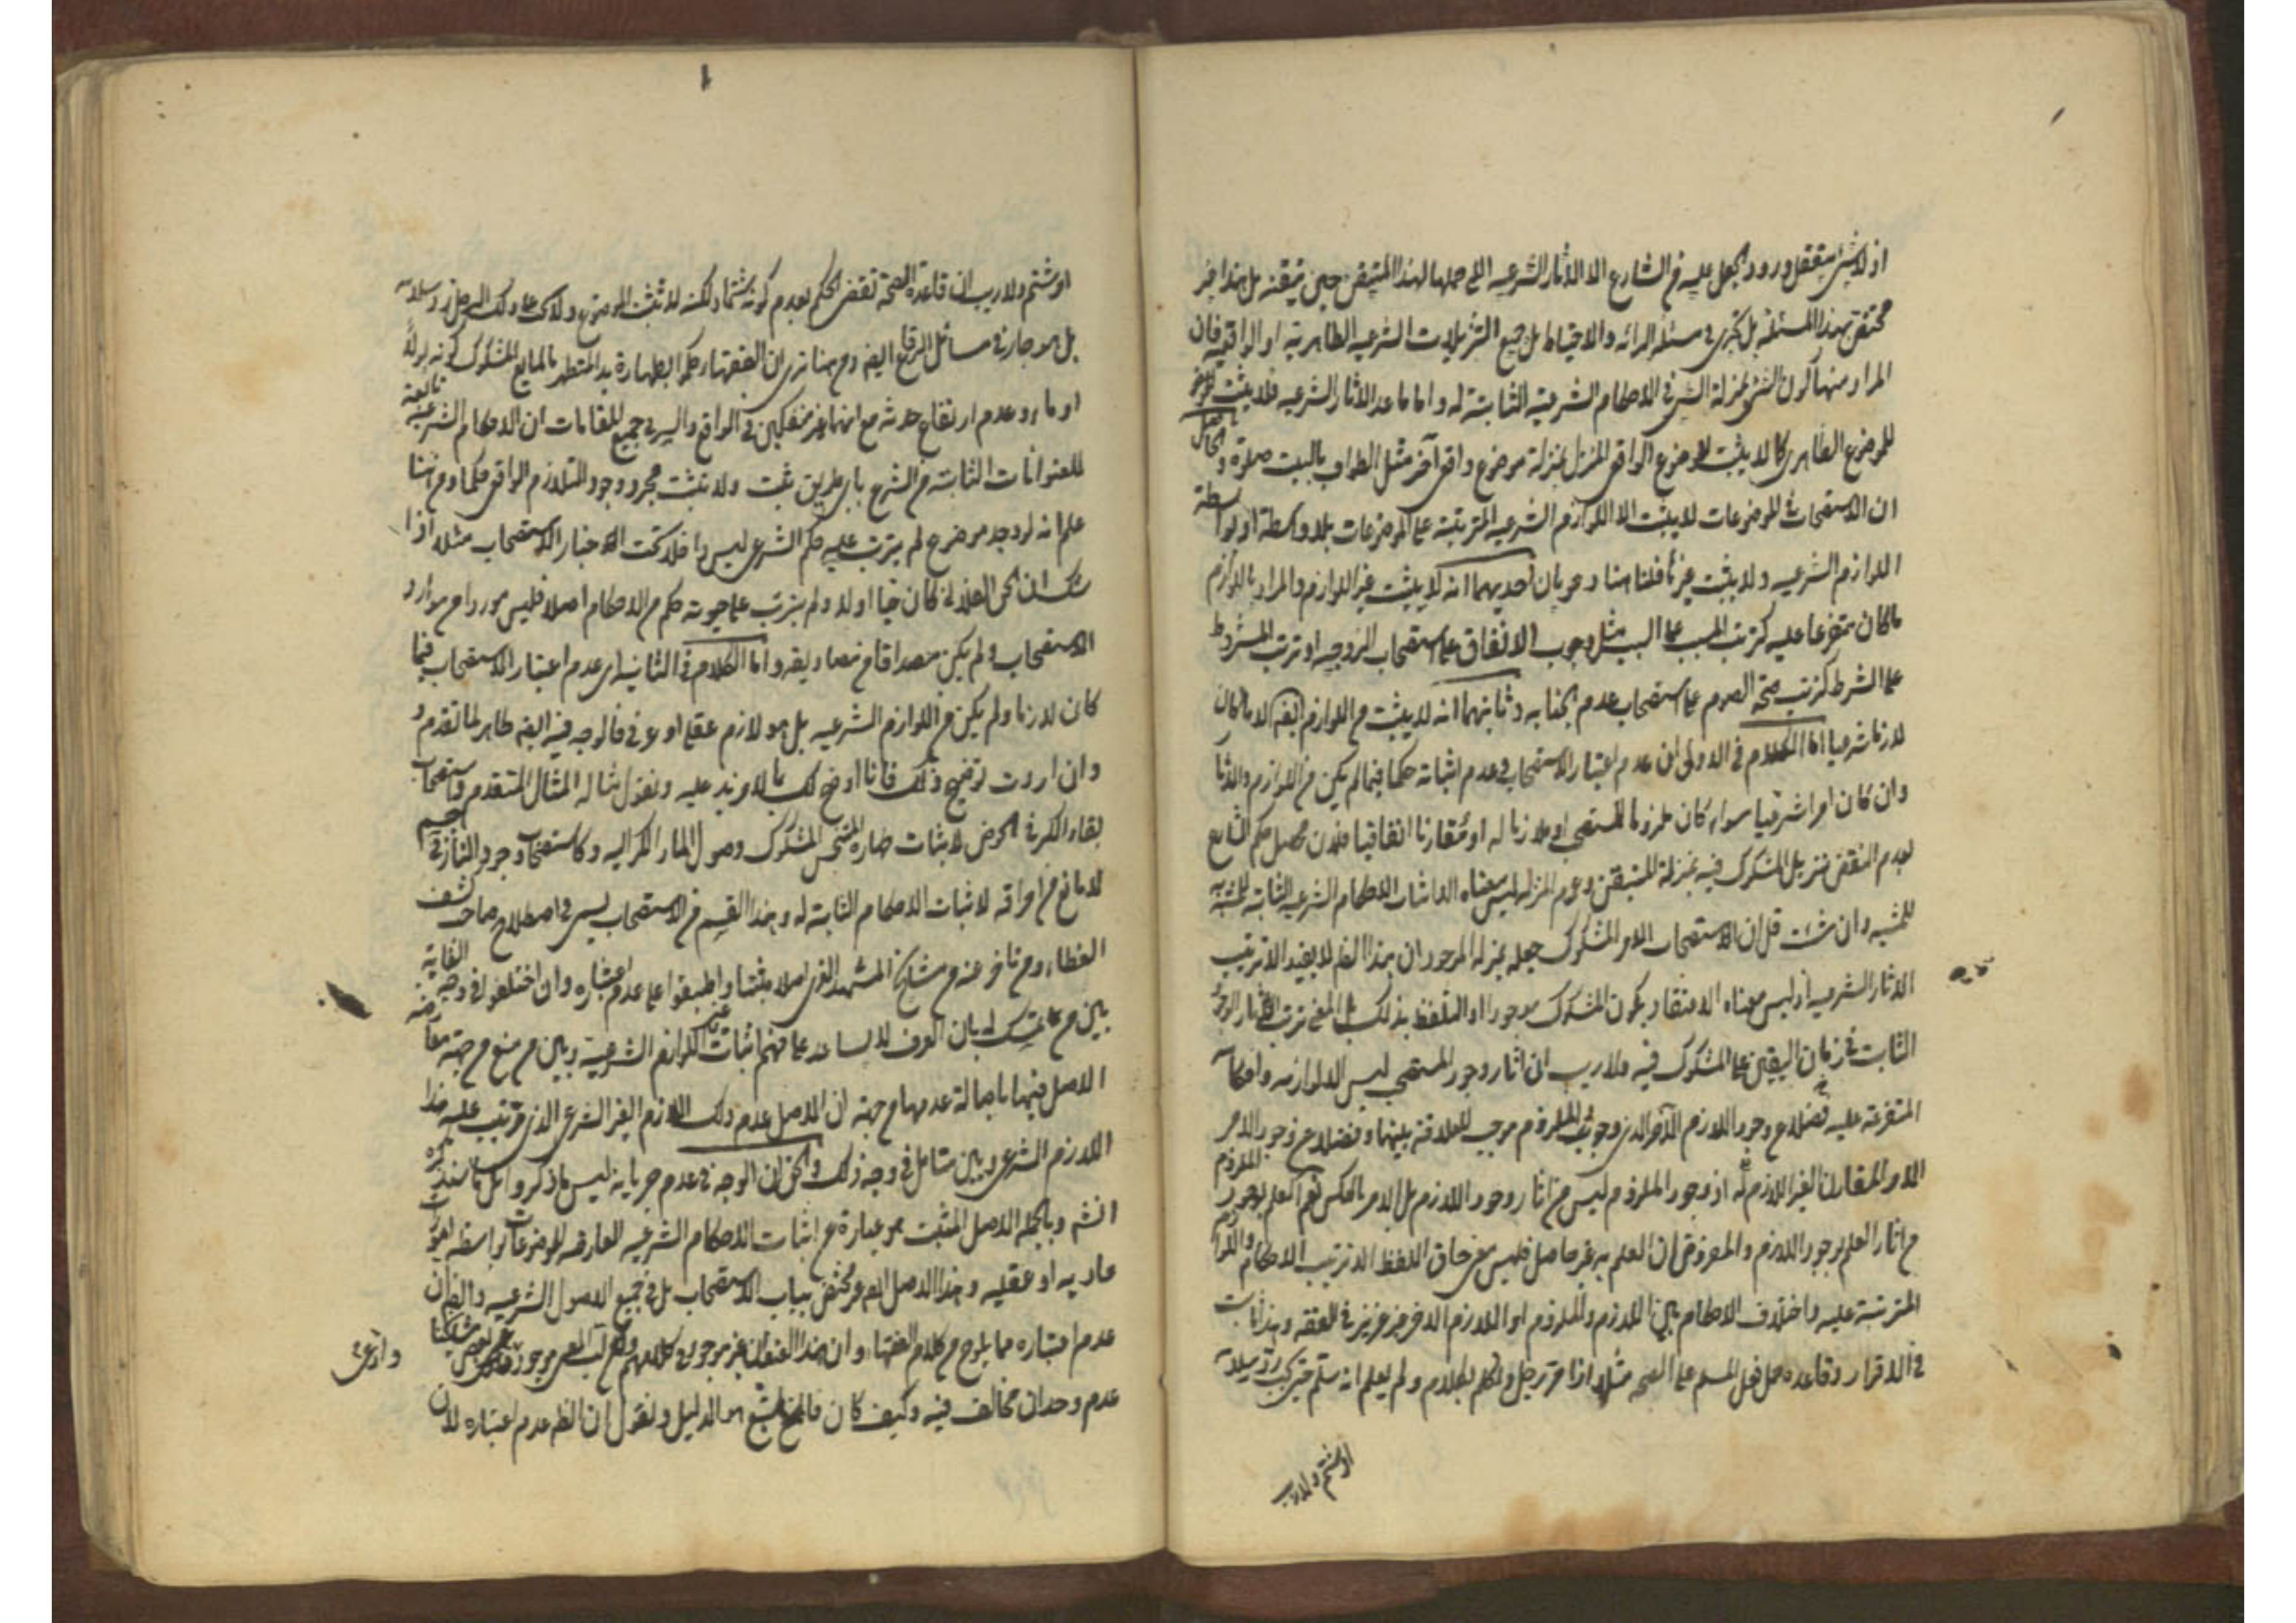 اذ لا شئ يتعقل ورود الجعل عليه من الشارع الا الاثار الشرعيه التى جعلها لهذا المتيقن حين تيقنه بل هذا غير
مختص بهذا المسئلة بل تجرى فى مسئلة البرائه والاحتياط بل جميع التنزيلات الشرعيه الظاهريه او الواقعيه فان
المراد منها كون الشئ بمنزلة الشئ فى الاحكام الشرعيه الثابتة له واما ما عدا الاثار الشرعيه فلا يثبت
للموضوع الظاهرى كما لا يثبت للموضوع الواقعى المنزل بمنزلة موضوع واقعى آخر مثل الطواف بالبيت صلوة والحاصل
ان الاستصحاب فى الموضوعات لا يثبت الا اللوازم الشرعيه المترتبة على الموضوعات بلا واسطة او بواسطة
اللوازم الشرعيه ولا يثبت غيرها فلنا هنا دعويان احديهما انه لا يثبت غير اللوازم والمراد باللوازم
ما كان متفرعا عليه كترتب المسبب على السبب مثل وجوب الانفاق على استصحاب الزوجيه او ترتب المشروط
على الشرط كترتب صحة الصوم على استصحاب عدم الجنابه وثانيهما انه لا يثبت من اللوازم ايضا الا ما كان
لازما شرعيا اما الكلام فى الاولى اى عدم اعتبار الاستصحاب وعدم اثباته حكما فيما لم يكن من اللوازم والاثار
وان كان امرا شرعيا سواء كان ملزوما للمستصحب او ملازما له او مقارنا اتفاقيا فلان محصل حكم الشارع
بعدم النقض تنزيل المشكوك فيه بمنزلة المتيقن وعموم المنزله ليس معناه الا اثبات الاحكام الشرعيه الثابته للمشبه به
للمشبه وان شئت قل ان استصحاب الامر المشكوك جعله بمنزله الموجود ان هذا الجعل لا يفيد الا ترتيب
الاثار الشرعيه اذ ليس معناه الاعتقاد بكون المشكوك موجودا او التلفظ بذلك بل المعنى ترتب الاثار
الثابت فى زمان اليقين على المشكوك فيه ولا ريب ان اثار وجود المستصحب ليس الا لوازمه واحكامه
المتفرعة عليه فضلا عن وجود اللازم الآخر الذى وجوب الملزوم موجب للعلاقة بينهما وفضلا عن وجود الامر
الامر المقارن الغير اللازم له اذ وجود الملزوم ليس من اثار وجود اللازم بل الامر بالعكس نعم العلم بوجود الملزوم
من اثار العلم بوجود اللازم والمفروض ان العلم به غير حاصل فليس معنى حاق اللفظ الا ترتيب الاحكام واللوازم
المترتبة عليه واختلاف الاحكام بين اللازم والملزوم او اللازم الاخر غير عزيز فى الفقه وهذا ثابت
فى الاقرار وقاعده حمل فعل المسلم على الصحه مثلا اذا مر رجل وتكلم بكلام ولم يعلم انه سلم حتى يجب رد سلامه
او شتم ولا ريب
او شتم ولا ريب ان قاعدة الصحة تقتضى الحكم بعدم كونه شتما ولكنه لا تثبت الموضوع رد سلامه
بل هو جار فى مسائل الرضاع ايضا ومن هنا ترى ان الفقهاء حكموا بطهارة يد المتطهر بالمايع المشكوك كونه بولا
او ماء وعدم ارتفاع حدثه مع انهما غير منفكين فى الواقع والسر فى جميع المقامات ان الاحكام الشرعيه تابعة
للعنوانات الثابتة فى الشرع باى طريق ثبت ولا تثبت بمجرد وجود التلازم الواقعى حكما ومن هنا
علم انه لو وجد موضوع لم يترتب عليه حكم الشرعى ليس داخلا تحت اخبار الاستصحاب مثلا اذا
شك ان الحى الفلانى كان حيا او لا ولم يترتب على حيوته حكم من الاحكام اصلا فليس موردا من موارد
الاستصحاب ولم يكن مصداقا من مصاديقه واما الكلام فى الثانيه اى عدم اعتبار الاستصحاب فيما
كان لازما ولم يكن من اللوازم الشرعيه بل هو لازم عقلى او عرفى فالوجه فيه ايضا ظاهر لما تقدم و
وان اردت توضيح ذلك فانا اوضح لك بما لا مزيد عليه ونقول مثاله المثال المتقدم واستصحاب
بقاء الكر فى الحوض لاثبات طهاره المتنجس المشكوك وصول الماء الكر اليه وكاستصحاب وجود النار فى جسم
لا مانع من احراقه لاثبات الاحكام الثابته له وهذا القسم من الاستصحاب يسمى فى اصطلاح صاحب كشف
الغطاء ومن تاخر عنه من مشايخ المشهد الغروى اصلا مثبتا واطبقوا على عدم اعتباره وان اختلفوا فى وجهه الغاية
بين من تمسك له بان العرف لا يساعد على فهم اثبات غير اللوازم الشرعية وبين من منع من جهة معارضة
الاصل فيها باصالة عدمها من جهة ان الاصل عدم ذلك اللازم الغير الشرعى الذى ترتب عليه هذا
اللازم الشرعى وبين متامل فى وجه ذلك والحق ان الوجه فى عدم جريانه ليس ما ذكروا بل ما سنذكره
انشا وبالجمله الاصل المثبت هو عبارة عن اثبات الاحكام الشرعيه العارضه للموضوعات بواسطه امور
عاديه او عقليه وهذا الاصل غير مختص بباب الاستصحاب بل فى جميع الاصول الشرعيه والظ ان
عدم اعتباره مما يلوح من كلام الفقهاء وان هذا العنوان غير موجود فى كلامهم عن بعض مشايخنا
وادعى
عدم وجدان مخالف فيه وكيف كان فالمتبع هو الدليل ونقول ان الظ عدم اعتباره لان